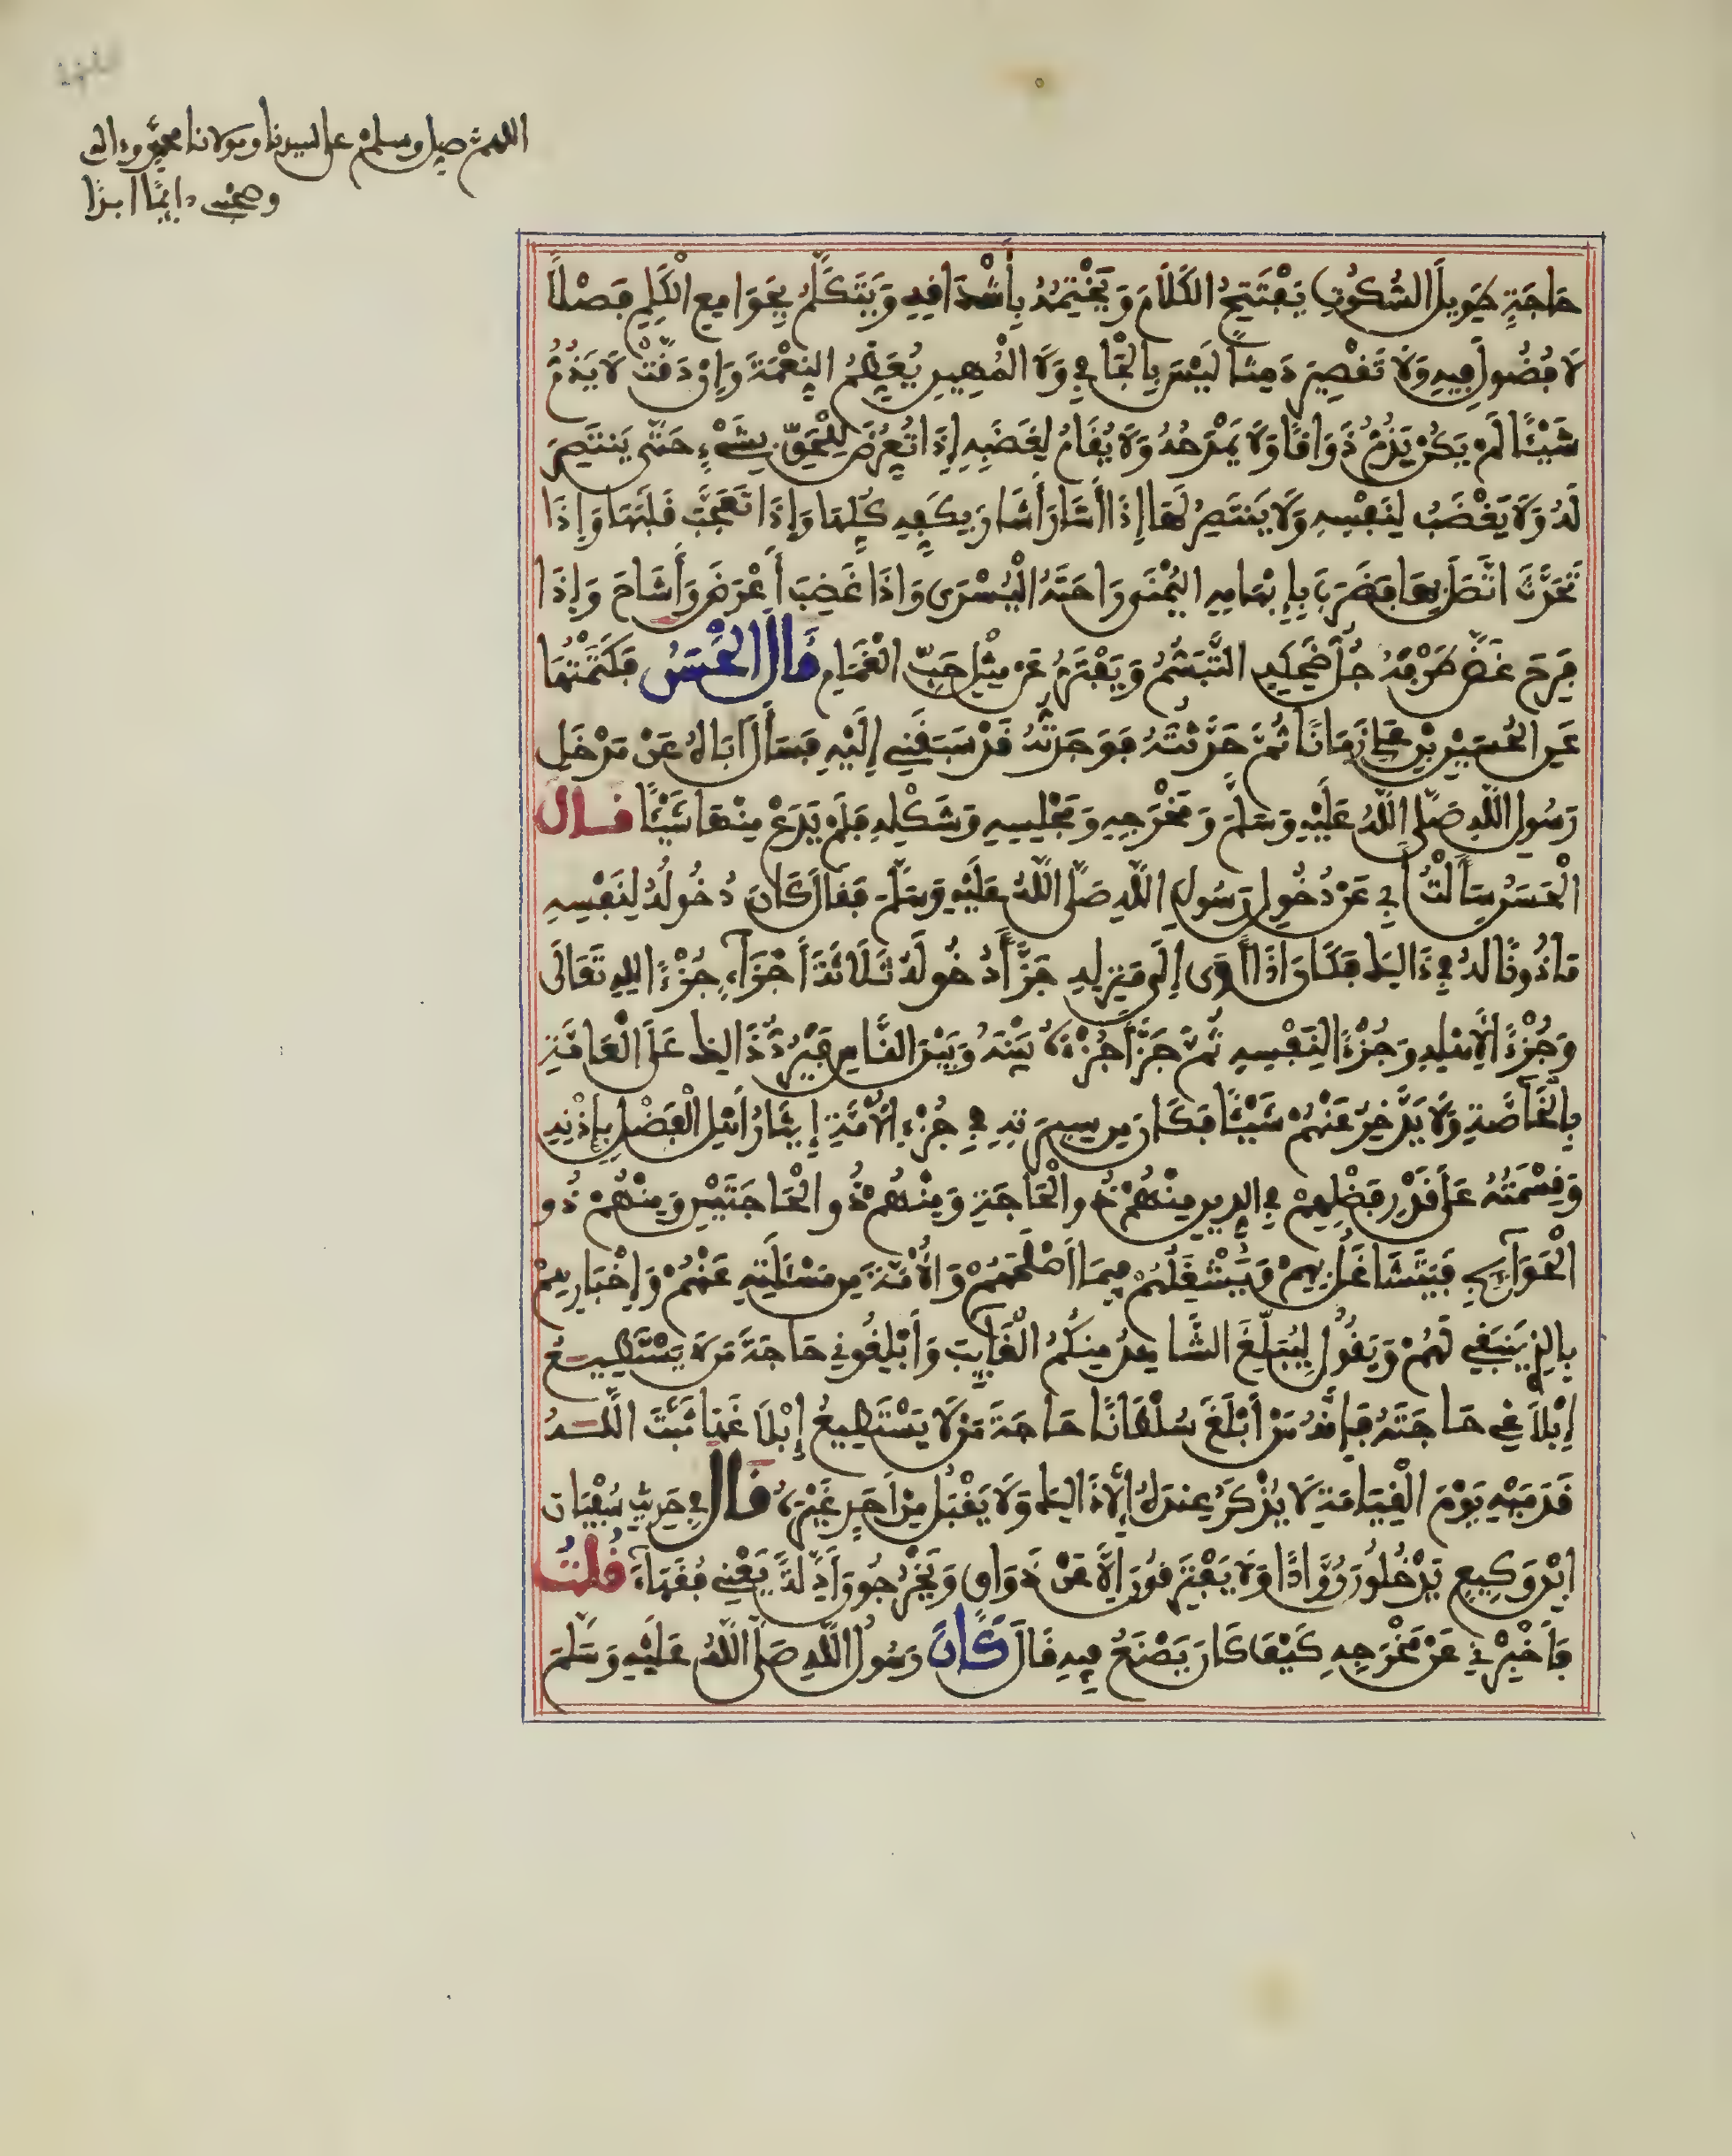 اللهم صل وسلم على سيدنا ومولانا محمد وءاله
وصحبه دائما ابدا
حَاجَةٍ طَوِيلَ السُّكُوتِ يَفْتَتِحُ الْكَلَامَ وَيَخْتِمُهُ بِأَشْدَافِهِ وَيَتَكَلَّمُ بِجَوَامِعِ الْكَلِمِ فَصْلاً
لَا فُضُولَ فِيهِ وَلَا تَقْصِيرَ دَمِثاً لَيْسَ بِالْجَافِي وَلَا الْمُهِينِ يُعَظِّمُ النِّعْمَةَ وَإِن دَقَّتْ لَا يَذُمُّ
شَيْئاً لَمْ يَكُنْ يَذُمُّ ذَوَاقاً وَلَا يَمْدَحُهُ وَلَا يُقَامُ لِغَضَبِهِ إِذَا تُعُرِّضَ لِلْحَقِّ بِشَيْءٍ حَتَّى يَنتَصِرَ
لَهُ وَلَا يَغْضَبُ لِنَفْسِهِ وَلَا يَنتَصِرُ لَهَا إِذَا أَشَارَ أَشَارَ بِكَفِّهِ كُلِّهَا وَإِذَا تَعَجَّبَ قَلَبَهَا وَإِذَا
تَحَدَّثَ اتَّصَلَ بِهَا فَضَرَبَ بِإِبْهَامِهِ الْيُمْنَى رَاحَتَهُ الْيُسْرَى وَإِذَا غَضِبَ أَعْرَضَ وَأَشَاحَ وَإِذَا
فَرِحَ غَضَّ طَرْفَهُ جُلُّ ضَحِكِهِ التَّبَسُّمُ وَيَفْتَرُّ عَنْ مِثْلِ حَبِّ الْغَمَامِ قَالَ الْحَسَنُ فَكَتَمْتُهَا
عَنِ الْحُسَيْنِ بْنِ عَلِيٍّ زَمَاناً ثُمَّ حَدَّثْتُهُ فَوَجَدتُّهُ قَدْ سَبَقَنِي إِلَيْهِ فَسَأَلَ أَبَاهُ عَنْ مَدْخَلِ
رَسُولِ اللَّهِ صَلَّى اللَّهُ عَلَيْهِ وَسَلَّمَ وَمَخْرَجِهِ وَمَجْلِسِهِ وَشَكْلِهِ فَلَمْ يَدَعْ مِنْهَا شَيْئاً قَالَ
الْحَسَنُ سَأَلْتُ أَبِي عَنْ دُخُولِ رَسُولِ اللَّهِ صَلَّى اللَّهُ عَلَيْهِ وَسَلَّمَ فَقَالَ كَانَ دُخُولُهُ لِنَفْسِهِ
مَاذُوناً لَهُ فِي ذَالِكَ فَكَانَ إِذَا أَوَى إِلَى مَنْزِلِهِ جَزَّأَ دُخُولَهُ ثَلَاثَةَ أَجْزَاءٍ جُزْءاً لِلهِ تَعَالَى
وَجُزْءاً لِأَهْلِهِ وَجُزْءاً لِنَفْسِهِ ثُمَّ جَزَّأَ جُزْءَهُ بَيْنَهُ وَبَيْنَ النَّاسِ فَيَرُدُّ ذَالِكَ عَلَى الْعَامَّةِ
بِالْخَاصَّةِ وَلَا يَدَّخِرُ عَنْهُمْ شَيْئاً فَكَانَ مِن سِيرَتِهِ فِي جُزْءِ الْأُمَّةِ إِيثَارُ أَهْلِ الْفَضْلِ بِإِذْنِهِ
وَقِسْمَتُهُ عَلَى قَدْرِ فَضْلِهِمْ فِي الدِّينِ مِنْهُمْ ذُو الْحَاجَةِ وَمِنْهُمْ ذُو الْحَاجَتَيْنِ وَمِنْهُمْ ذُو
الْحَوَآئِجِ فَيَتَشَاغَلُ بِهِمْ وَيُشْغِلُهُمْ فِيمَا أَصْلَحَهُمْ وَالْأُمَّةَ مِن مَسْئَلَتِهِ عَنْهُمْ وَإِخْبَارِهِمْ
بِالذِي يَنْبَغِي لَهُمْ وَيَقُولُ لِيُبَلِّغِ الشَّاهِدُ مِنكُمُ الْغَائِبَ وَأَبْلِغُونِي حَاجَةَ مَن لَا يَسْتَطِيعُ
إِبْلَاغِي حَاجَتَهُ فَإِنَّهُ مَنْ أَبْلَغَ سُلْطَاناً حَاجَةَ مَنْ لَا يَسْتَطِيعُ إِبْلَاغَهَا ثَبَّتَ اللَّهُ
قَدَمَيْهِ يَوْمَ الْقِيَامَةِ لَا يُذْكَرُ عِندَهُ إِلَّا ذَالِكَ وَلَا يَقْبَلُ مِنْ أَحَدٍ غَيْرَهُ قَالَ فِي حَدِيثِ سُفْيَانَ
ابْنِ وَكِيعٍ يَدْخُلُونَ رُوَّاداً وَلَا يَفْتَرِقُونَ إِلَّا عَنْ ذَوَاقٍ وَيَخْرُجُونَ أَدِلَّةً يَعْنِي فُقَهَاءَ قُلْتُ
فَأَخْبِرْنِي عَنْ مَخْرَجِهِ كَيْفَ كَانَ يَصْنَعُ فِيهِ قَالَ كَانَ رَسُولُ اللَّهِ صَلَّى اللَّهُ عَلَيْهِ وَسَلَّمَ